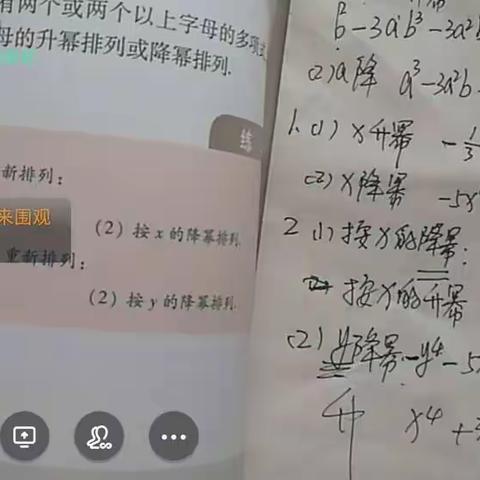 有两个或两个以上字母的多项式
母的升幂排列或降幂排列.
练
新排列：
来围观
（2）按 x 的降幂排列.
重新排列：
（2）按 y 的降幂排列.
b - 3a b³ - 3a²
(2) a降 a³ - 3a²b
1. (1) x升幂 - 1/3
(2) x降幂 -5x
2 (1) 按x的降幂：
按x的升幂
(2) y降幂 -y⁴ - 5
升 x⁴ +